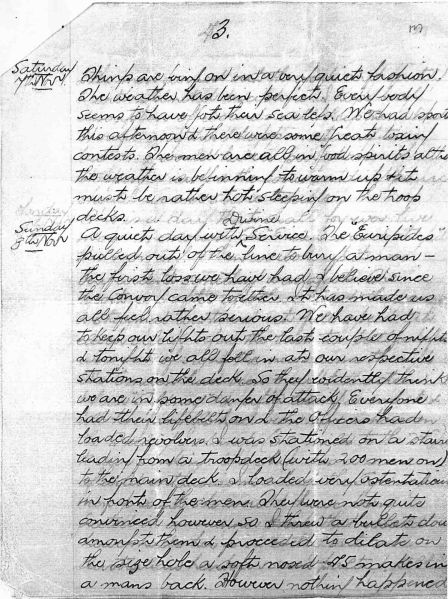 3.
Saturday
7th Nov.
Things are going on in a very quiet fashion.
The weather has been perfect. Every body
seems to have got their sea legs. We had sports
this afternoon & there were some great
contests. The men are all in good spirits altho
the weather is beginning to warm up & it
must be rather hot sleeping on the troop
decks.
Sunday
8th Nov
A quiet day with Divine Service. The "Euripides"
pulled out of the line to bury a man -
the first loss we have had I believe since
the Convoy came together. It has made us
all feel rather serious. We have had
to keep our lights out the last couple of nights
& tonight we all fell in at our respective
stations on the deck. So they evidently think
we are in some danger of attack. Everyone
had their lifebelts on & the Officers had
loaded revolvers. I was stationed on a stair
leading from a troopdeck (with 200 men on)
to the main deck. I loaded very ostentatious
in front of the men. They were not quite
convinced however so I threw a bullet dow
amongst them & proceeded to dilate on
the size hole a soft nosed .45 makes in
a mans back. However nothing happened